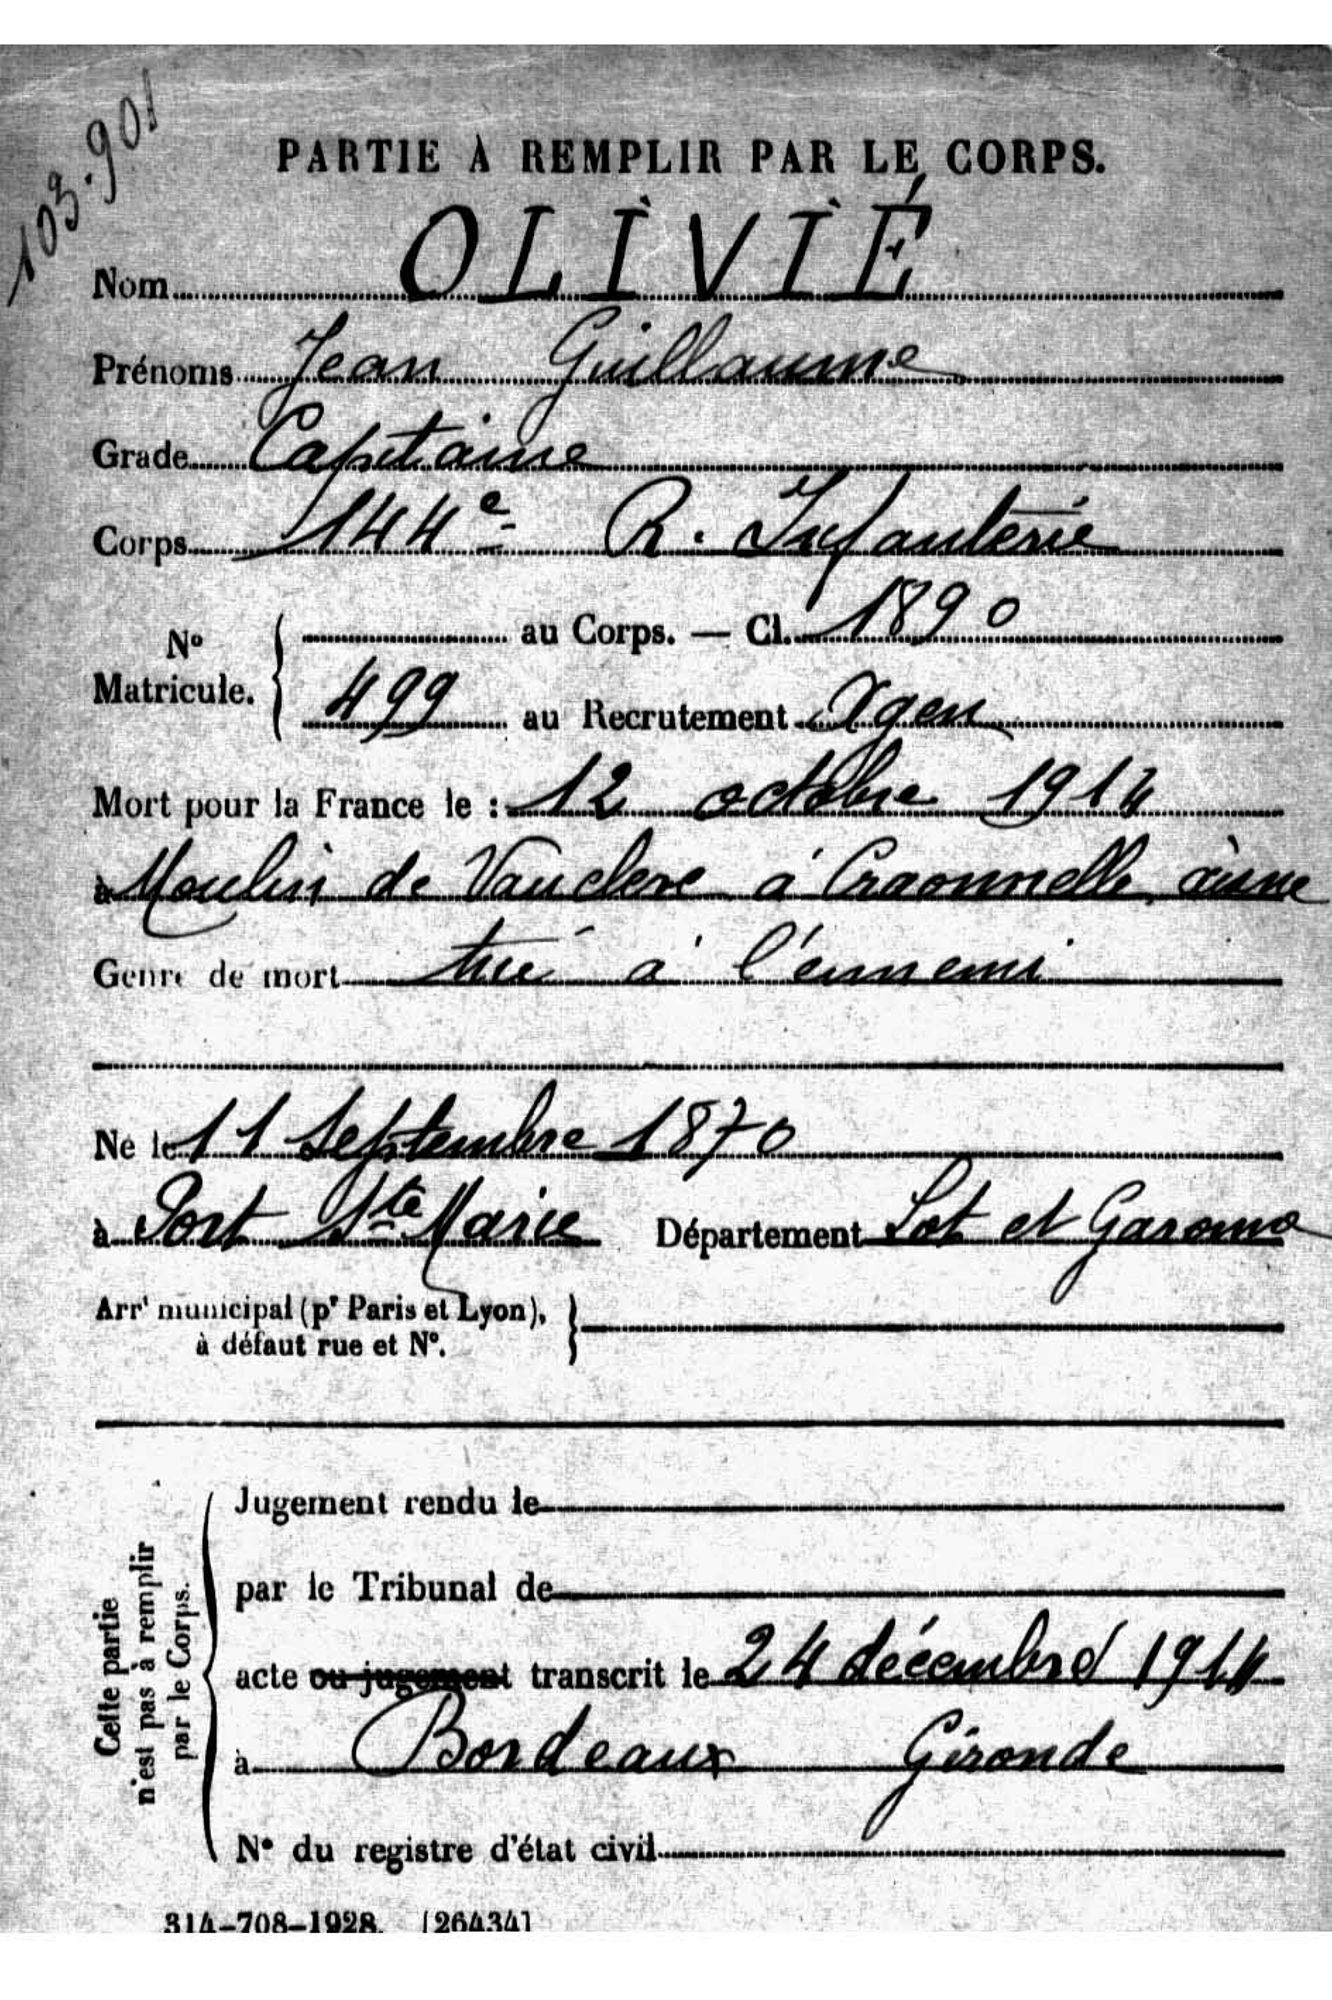 103.901
PARTIE À REMPLIR PAR LE CORPS.
Nom OLIVIÉ
Prénoms Jean Guillaume
Grade Capitaine
Corps 144e R. Infanterie
No Matricule. { au Corps. — Cl. 1890
499 au Recrutement Agen
Mort pour la France le : 12 octobre 1914
à Moulin de Vauclerc à Craonnelle, aisne
Genre de mort tué à l'ennemi
Né le 11 Septembre 1870
à Port Ste Marie Département Lot et Garonne
Arrt municipal (pr Paris et Lyon),
à défaut rue et No.
Cette partie
n'est pas à remplir
par le Corps.
Jugement rendu le
par le Tribunal de
acte ou jugement transcrit le 24 décembre 1914
à Bordeaux Gironde
No du registre d'état civil
314-708-1928. [26434]